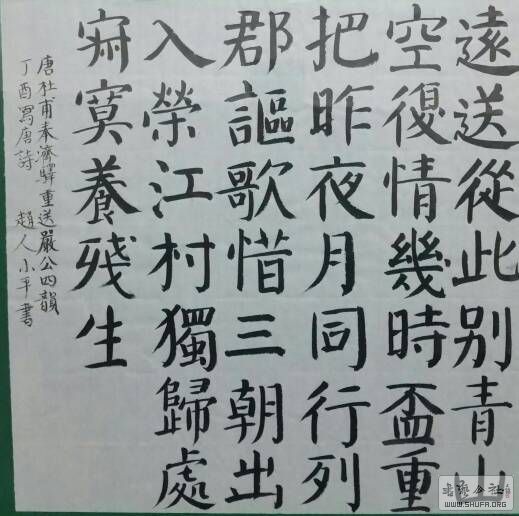 遠送從此别青山
空復情幾時盃重
把昨夜月同行列
郡謳歌惜三朝出
入榮江村獨歸處
寂寞養殘生
唐杜甫奉濟驛重送嚴公四韻
丁酉寫唐詩 趙人小平書
书法公社
WWW.SHUFA.ORG